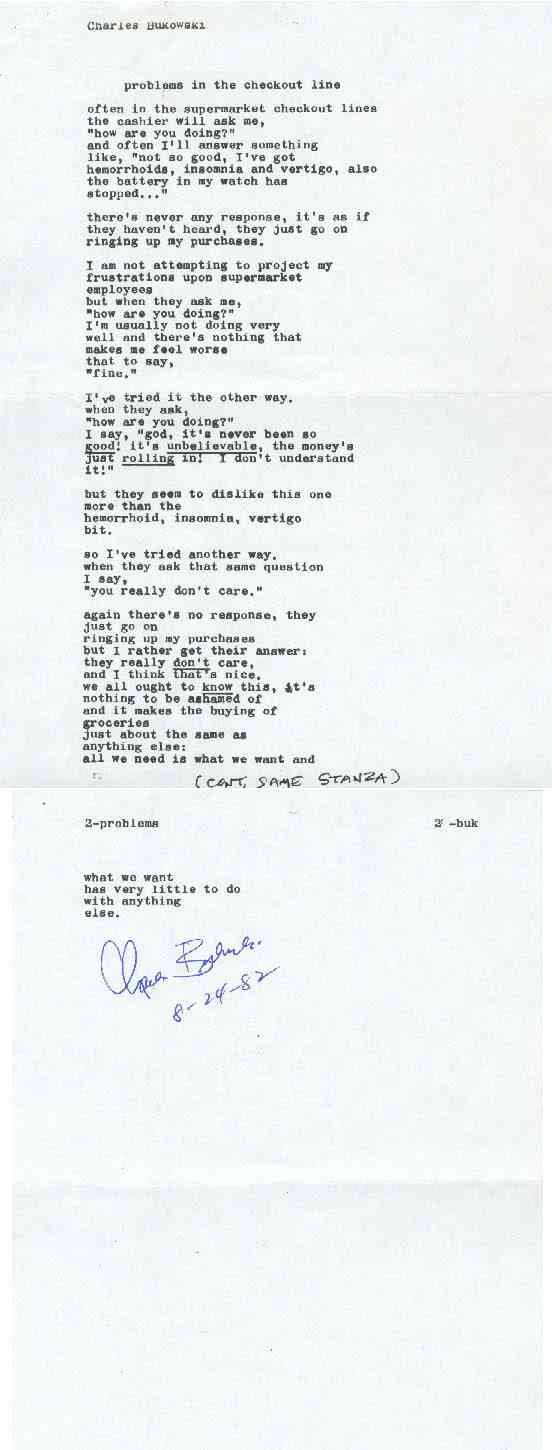 Charles Bukowski
problems in the checkout line
often in the supermarket checkout lines
the cashier will ask me,
"how are you doing?"
and often I'll answer something
like, "not so good, I've got
hemorrhoids, insomnia and vertigo, also
the battery in my watch has
stopped..."
there's never any response, it's as if
they haven't heard, they just go on
ringing up my purchases.
I am not attempting to project my
frustrations upon supermarket
employees
but when they ask me,
"how are you doing?"
I'm usually not doing very
well and there's nothing that
makes me feel worse
that to say,
"fine."
I've tried it the other way.
when they ask,
"how are you doing?"
I say, "god, it's never been so
good! it's unbelievable, the money's
just rolling in!  I don't understand
it!"
but they seem to dislike this one
more than the
hemorrhoid, insomnia, vertigo
bit.
so I've tried another way.
when they ask that same question
I say,
"you really don't care."
again there's no response, they
just go on
ringing up my purchases
but I rather get their answer:
they really don't care,
and I think that's nice.
we all ought to know this, it's
nothing to be ashamed of
and it makes the buying of
groceries
just about the same as
anything else:
all we need is what we want and
(CONT, SAME STANZA)
2-problems 2 -buk
what we want
has very little to do
with anything
else.
Charles Bukowski
8-24-82